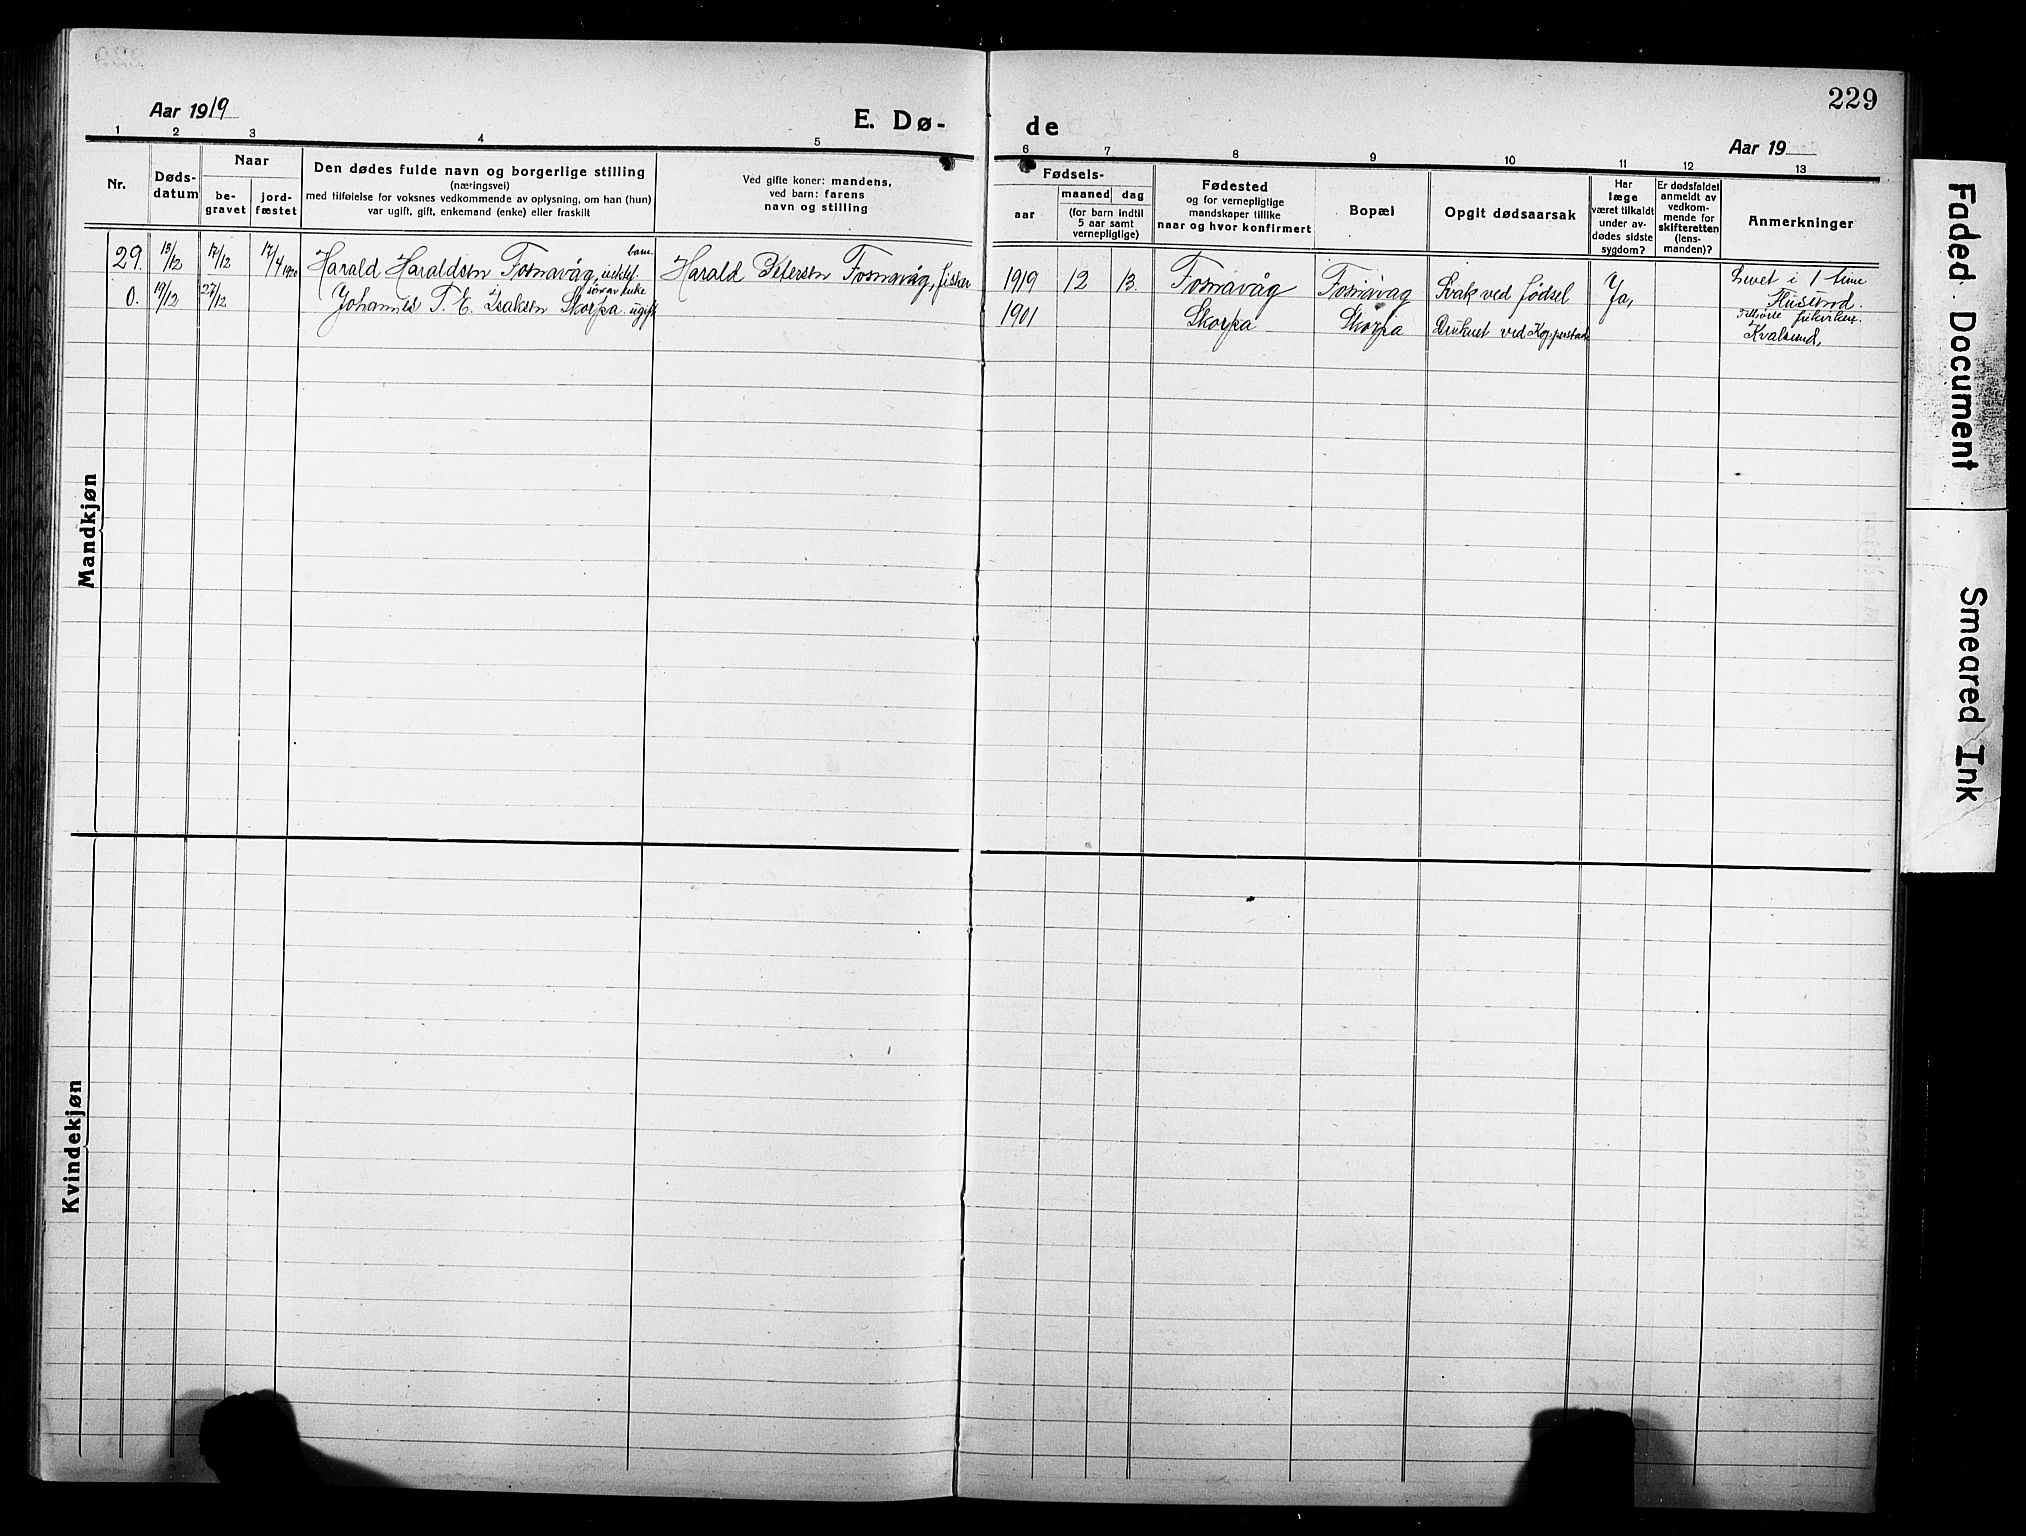 229
Aar 1919
E. Dø-
de
Aar 19
1 2 3 4 5 6 7 8 9 10 11 12 13
Nr.
Døds-
datum
Naar
be-
gravet
jord-
fæstet
Den dødes fulde navn og borgerlige stilling
(næringsvei)
med tilføielse for voksnes vedkommende av oplysning, om han (hun)
var ugift, gift, enkemand (enke) eller fraskilt
Ved gifte koner: mandens,
ved barn: farens
navn og stilling
Fødsels-
aar
maaned
dag
(for barn indtil
5 aar samt
vernepligtige)
Fødested
og for vernepligtige
mandskaper tillike
naar og hvor konfirmert
Bopæl
Opgit dødsaarsak
Har
læge
været tilkaldt
under av-
dødes sidste
sygdom?
Er dødsfaldet
anmeldt av
vedkom-
mende for
skifteretten
(lens-
manden)?
Anmerkninger
Mandkjøn
29. 13/12 17/12 17/4 1920 Harald Haraldsen Fosnavåg, barn Harald Petersen Fosnavåg, fisker 1919 12 13. Fosnavåg Fosnavåg Svak ved fødsel Ja, Levet i 1 time
0. 19/12 27/12 Johannes T. E. Isaksen Skorpa. ugift søn av enke 1901 Skorpa Skorpa Druknet ved Kopperstad
Kvalsund,
Kvindekjøn
Faded Document
Smeared Ink